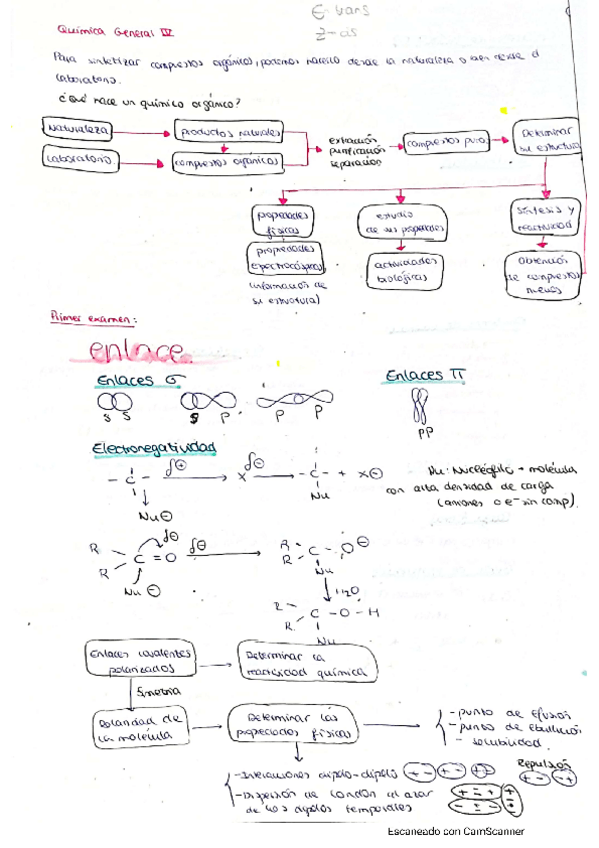 E-trans
Z-cis
Química General IV
Para sintetizar compuestos orgánicos, podemos hacerlo desde la naturaleza o bien desde el
laboratorio.
¿Qué hace un químico orgánico?
Naturaleza
productos naturales
Laboratorio
compuestos orgánicos
extracción
purificación
separación
compuestos puros
Determinar
su estructura
propiedades
físicas
propiedades
espectroscópicas
(información de
su estructura)
estudio
de sus propiedades
actividades
biológicas
síntesis y
reactividad
Obtención
de compuestos
nuevos
Primer examen:
enlace
Enlaces σ
s s
s p
p p
Enlaces π
PP
Electronegatividad
- C - δ⊕ x δ⊖ - C - + x⊖
Nu⊖
Nu
Nu: Nucleófilo → molécula
con alta densidad de carga
(aniones o e⁻ sin comp).
R R C = O δ⊖
Nu⊖
R R C - O⊖
Nu
H2O
R R C - O - H
Nu
Enlaces covalentes
polarizados
Determinar la
reactividad química
Simetría
Polaridad de
la molécula
Determinar las
propiedades físicas
- punto de fusión
- punto de ebullición
- solubilidad
- Interacciones dipolo-dipolo
Repulsión
- Dispersión de London al azar
de los dipolos temporales
Escaneado con CamScanner